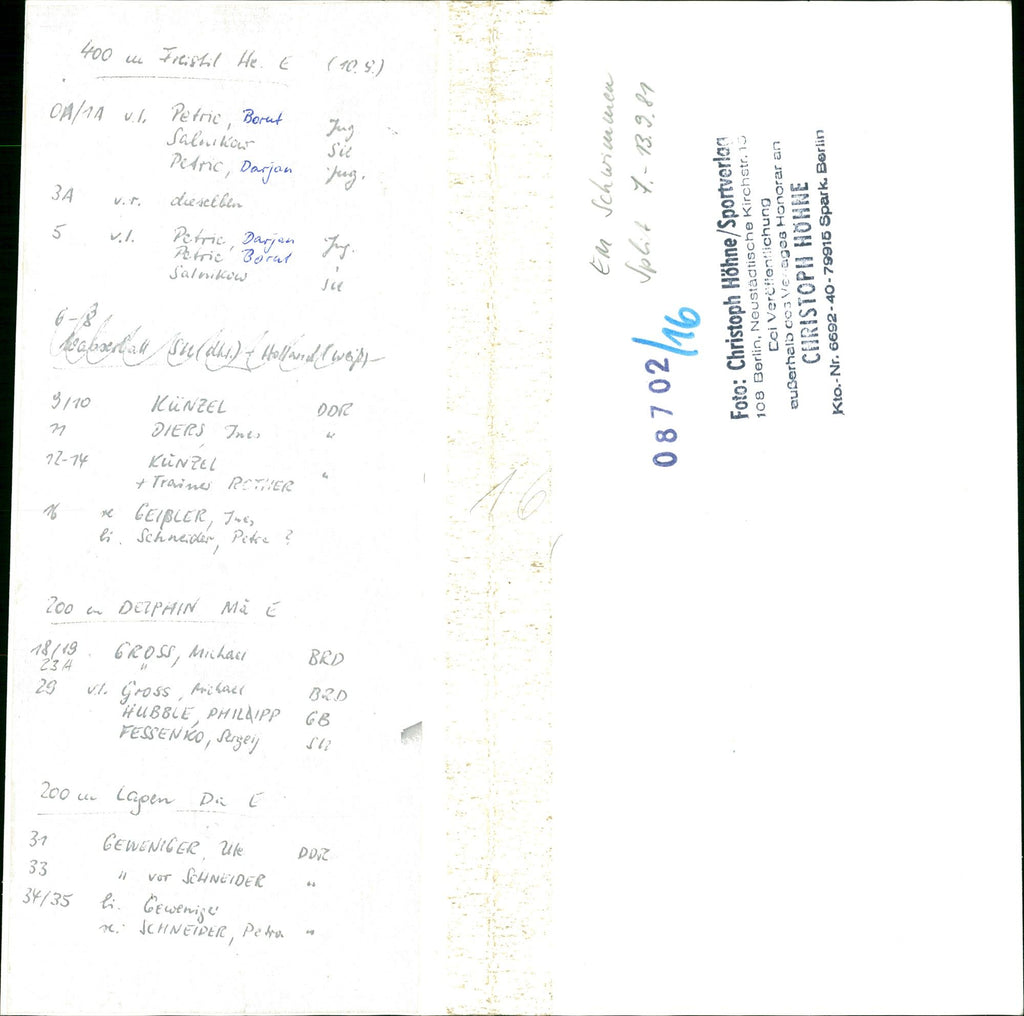 400 m Freistil He. E (10.9.)
0A/1A v.l. Petric, Borut Jug
Salnikow SU
Petric, Darjan Jug.
3A v.r. dieselben
5 v.l. Petric, Darjan Jg.
Petric Borut
Salnikow SU
6-8
Wasserball SU (dkl.) - Holland (weiß)
9/10 KÜNZEL DDR
11 DIERS, Ines "
12-14 KÜNZEL
+ Trainer ROTHER "
16 re GEIßLER, Ines
li. Schneider, Petra ?
200 m DELPHIN Mä E
18/19 GROSS, Michael BRD
23A "
29 v.l. Gross, Michael BRD
HUBBLE, PHILIPP GB
FESSENKO, Sergej SU
200 m Lagen Da E
31 GEWENIGER, Ute DDR
33 " vor SCHNEIDER "
34/35 li. Geweniger
re. SCHNEIDER, Petra "
16
EM Schwimmen
Split 7.-13.9.81
08702/16
Foto: Christoph Höhne/Sportverlag
108 Berlin, Neustädtische Kirchstr. 15
Bei Veröffentlichung
außerhalb des Verlages Honorar an
CHRISTOPH HÖHNE
Kto.-Nr. 6692-40-79915 Spark. Berlin